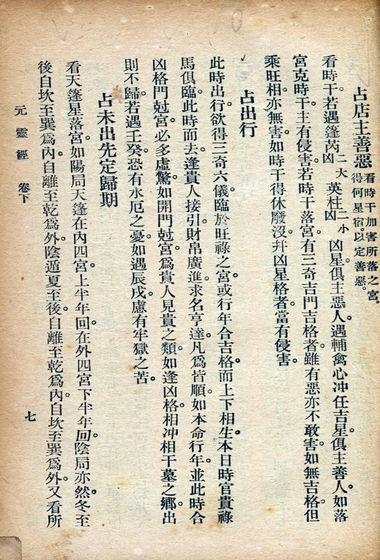 占店主善惡 看時干加害所落之宮
得何星宿。以定善惡。
看時干若遇蓬芮凶二大英柱凶二小凶星俱主惡人。遇輔禽心冲任吉星。俱主善人。如落
宮克時干。主有侵害。若時干落宮有三奇吉門吉格者。雖有惡亦不敢害。如無吉格。但
乘旺相。亦無害。如時干得休廢沒。幷凶星格者。當有侵害。
占出行
此時出行。欲得三奇六儀臨於旺祿之宮。或行年合吉格。而上下相生。本日時官貴祿
馬俱臨此時而去。逢貴人接引。財帛廣進。求名亨達。凡爲皆順。如本命行年。並此時合
凶格門尅宮。必多虛驚。如開門尅宮。爲貴人見貴之類。如逢凶格。相沖相干墓之鄉。出
則不歸。若遇壬癸。恐有水厄之憂。如遇辰戌。慮有牢獄之苦。
占未出先定歸期
看天蓬星落宮。如陽局天蓬在內四宮。上半年回。在外四宮。下半年回。陰局亦然。冬至
後自坎至巽爲內。自離至乾爲外。陰遁夏至後。自離至乾爲內。自坎至巽爲外。又看所
元靈經 卷下 七